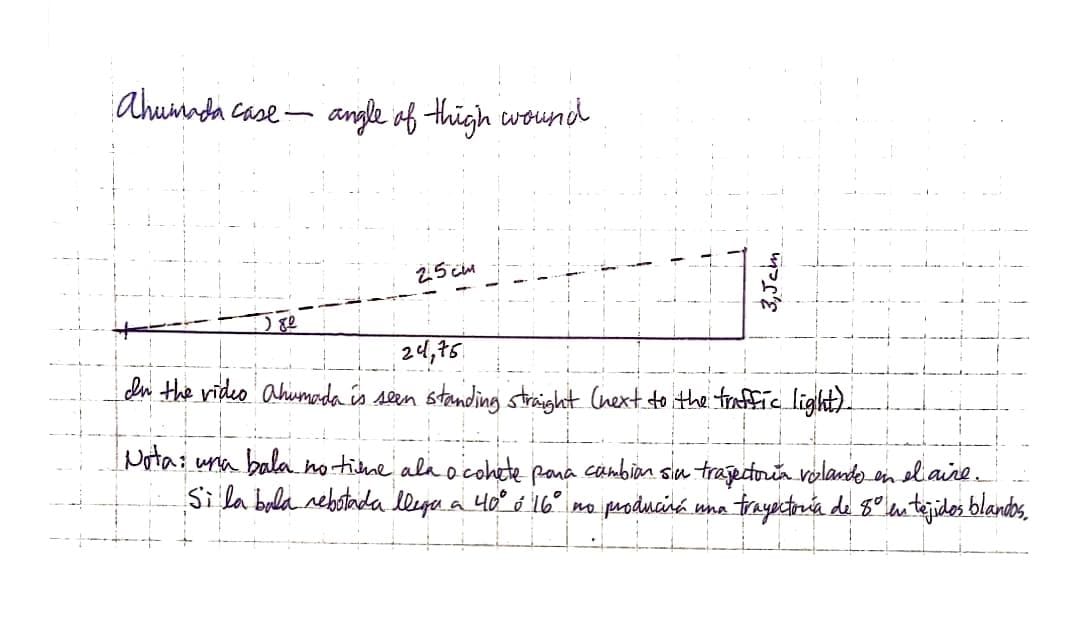 Ahumada case — angle of thigh wound
25 cm
3,5cm
8º
24,75
In the video Ahumada is seen standing straight (next to the traffic light).
Nota: una bala no tiene ala o cohete para cambiar su trajectoria volando en el aire.
Si la bala rebotada llega a 40° ó 16° no producirá una trayectoria de 8° en tejidos blandos.